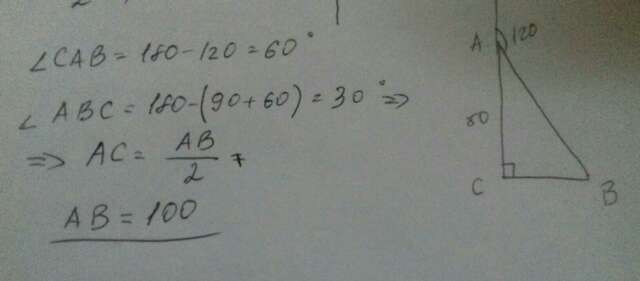 ∠CAB = 180 - 120 = 60°
∠ABC = 180 - (90 + 60) = 30° =>
=> AC = AB/2
AB = 100
A 120
C
B